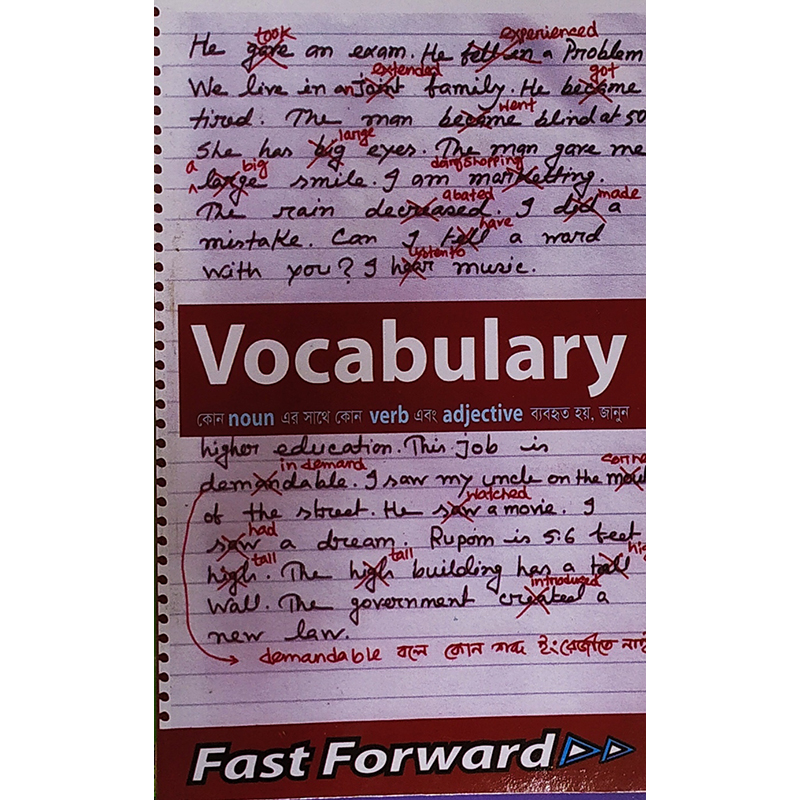 took experienced
He gave an exam. He fell in a Problem
extended got
We live in an joint family. He became
went
tired. The man became blind at 50
large
She has big eyes. The man gave me
a big doing shopping
large smile. I am marketting.
abated made
The rain decreased. I did a
have
mistake. Can I tell a word
listen to
with you? I hear music.
Vocabulary
কোন noun এর সাথে কোন verb এবং adjective ব্যবহৃত হয়, জানুন
higher education. This job is
in demand corne
demandable. I saw my uncle on the
watched
of the street. He saw a movie. I
had
saw a dream. Rupom is 5:6 feet
tall tall hig
high. The high building has a tall
introduced
wall. The government created a
new law.
demandable বলে কোন শব্দ ইংরেজীতে নাই
Fast Forward